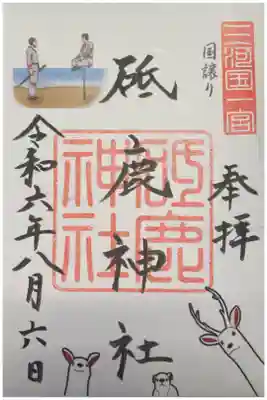 三河国一宮
国譲り
奉拝
砥鹿神社
砥鹿神社
令和六年八月六日